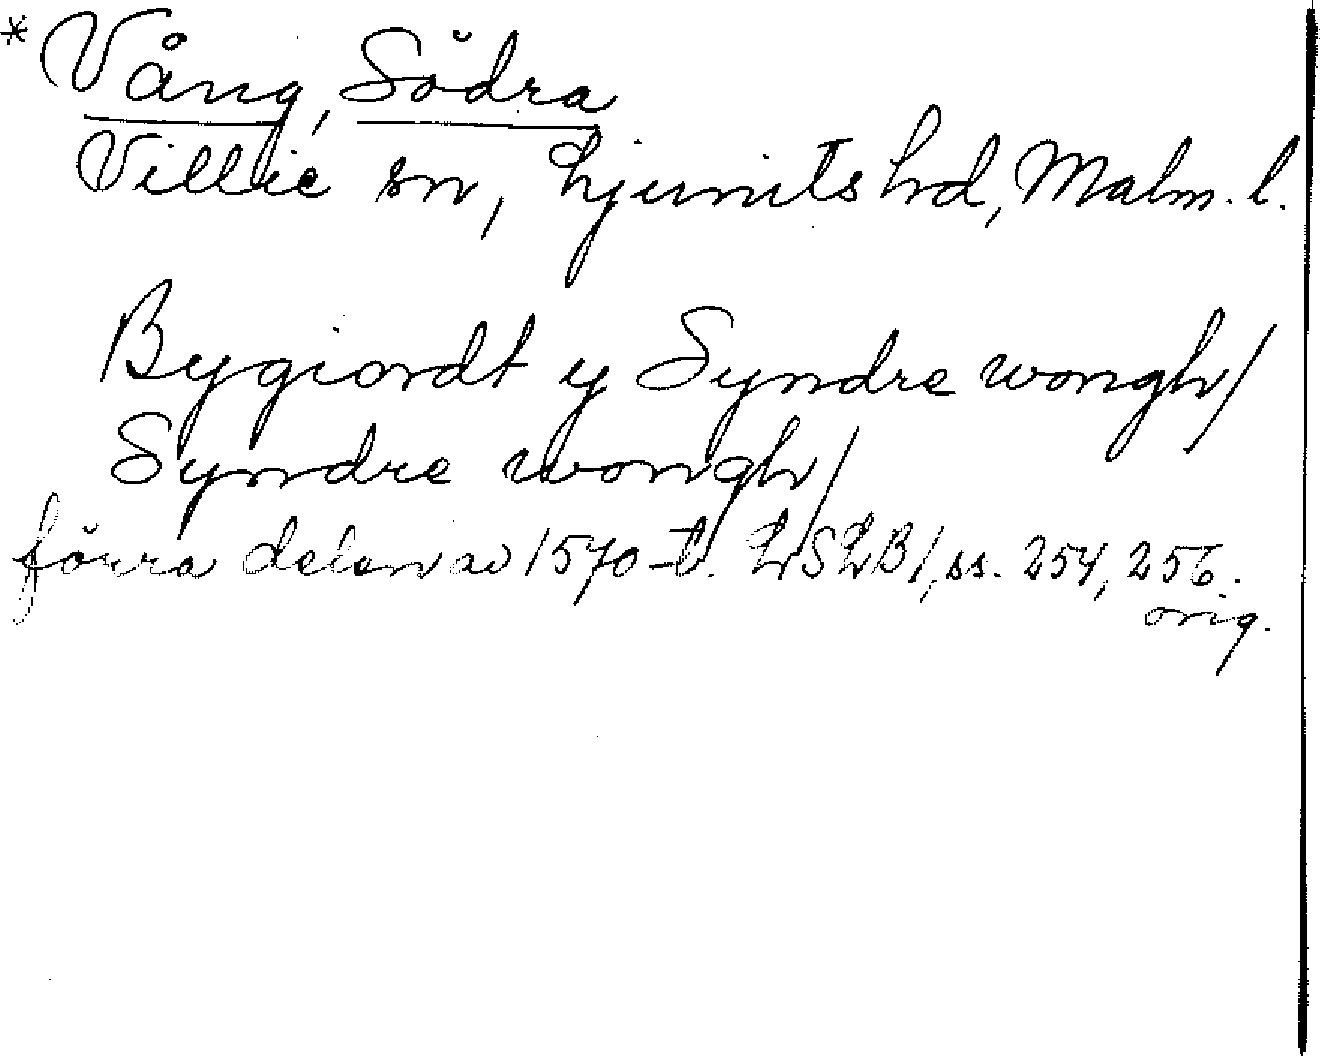 *Vång, Södra
Villie sn, Ljunits hd, Malm. l.
Bygiordt y Syndre wongh/
Syndre wongh/
förra delen av 1570-t. LSLB/, ss. 254, 256.
orig.